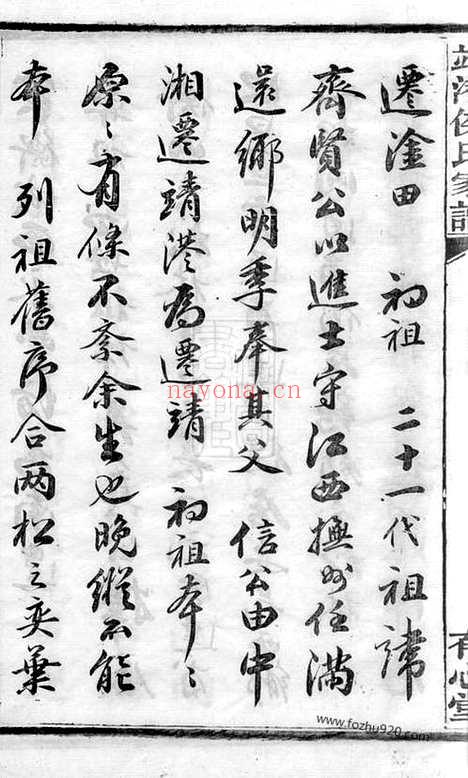 遷淦田　初祖　二十一代祖諱
齊賢公以進士守江西撫州任滿
還鄉明季奉其父　信公由中
湘遷靖港為遷靖　初祖本〻
原〻有條不紊余生也晚縱不能
本　列祖舊序合兩松之奕葉
侯氏家譜
有心堂
nayona.cn
www.fozhu920.com